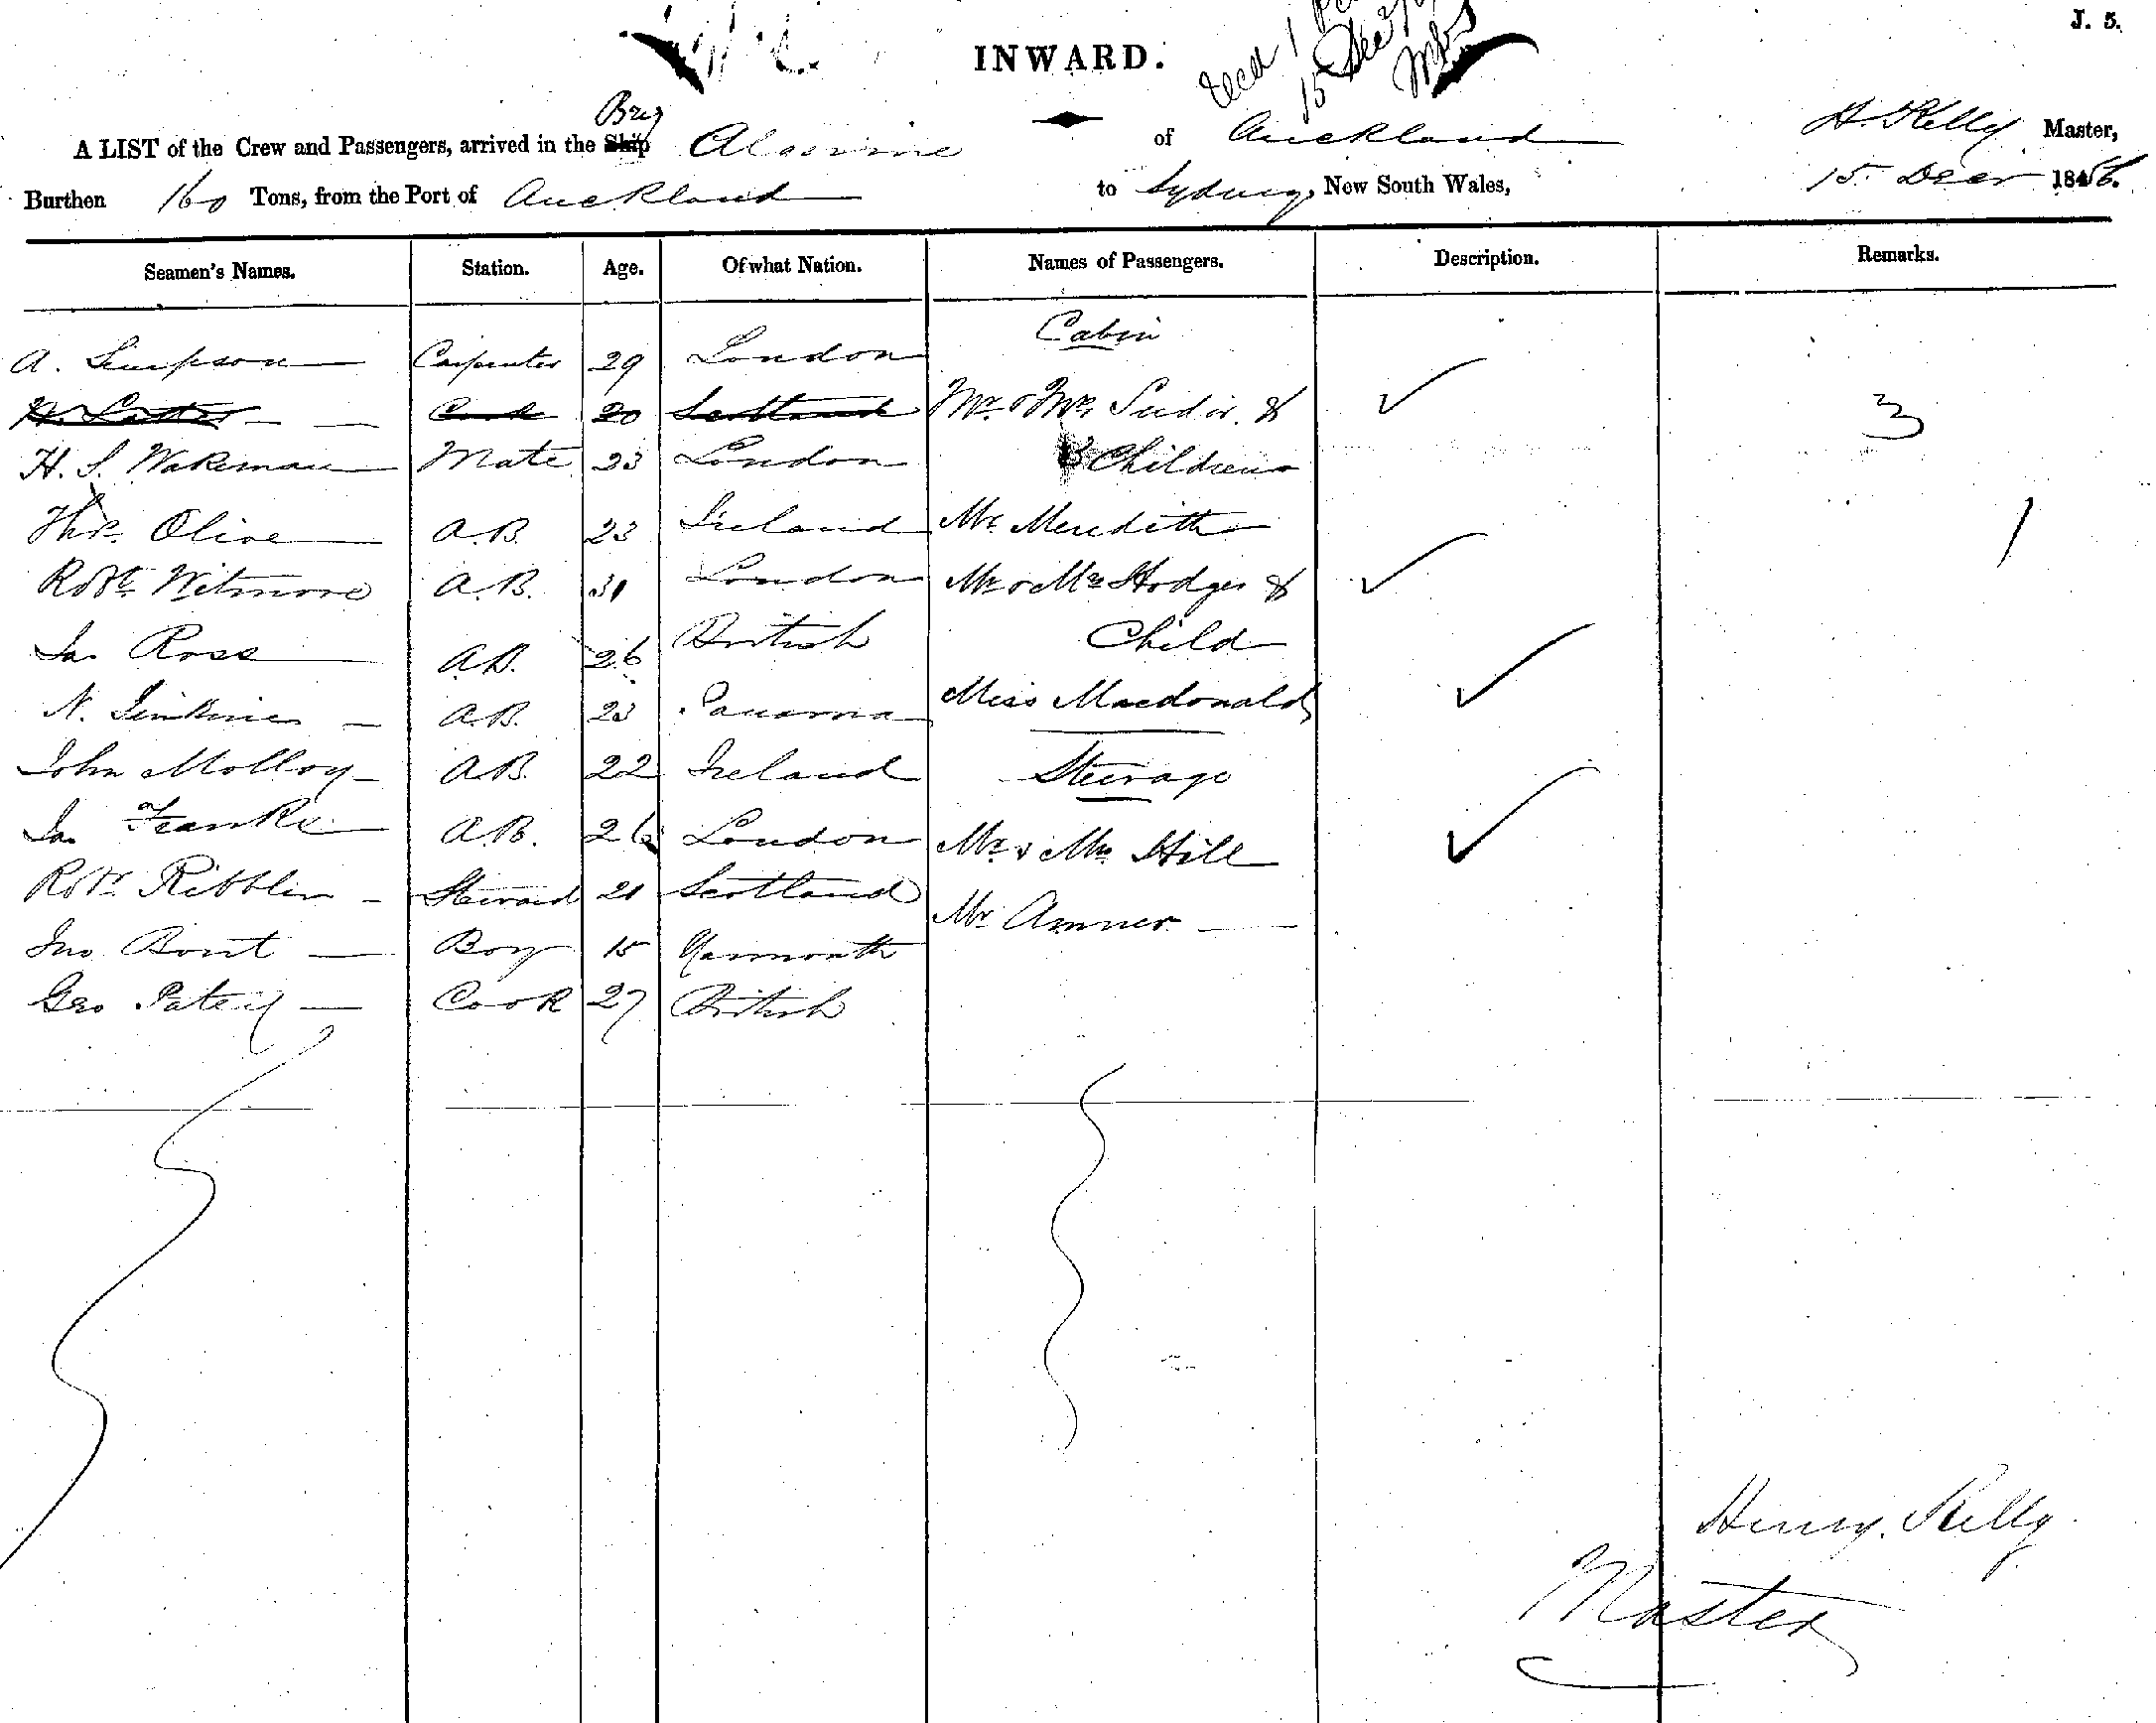 J. 5.
INWARD.
15 Dec
Brig
A LIST of the Crew and Passengers, arrived in the Ship Alcmene of Auckland H. Kelly Master,
Burthen 160 Tons, from the Port of Auckland to Sydney, New South Wales, 15 Decr 1856.
Seamen's Names. Station. Age. Of what Nation. Names of Passengers. Description. Remarks.
Cabin
A. Simpson Carpenter 29 London
Cook 20 Scotland Mr & Mrs & 3
H. S. Wakeman Mate 23 London 3 Children
Thos. Olive A.B. 23 Ireland Mr Meredith 1
Robt Witmore A.B. 31 London Mr & Mrs Hodges &
Jas Ross A.B. 26 British Child
N. Jenkins A.B. 23 Panama Miss Macdonald
John Molloy A.B. 22 Ireland Steerage
Jas Franks A.B. 26 London Mr & Mrs Hill
Robt Ribblen Steward 21 Scotland Mr Amner
Jno Bont Boy 15 Yarmouth
Geo Cook 27 British
Henry Kelly
Master